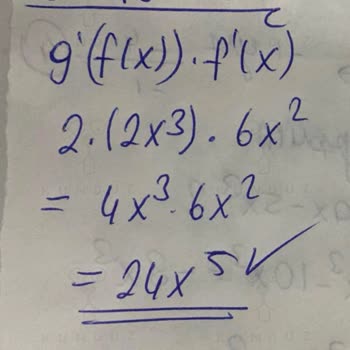 g'(f(x)) · f'(x)
2 · (2x³) · 6x²
= 4x³ · 6x²
= 24x⁵ ✓